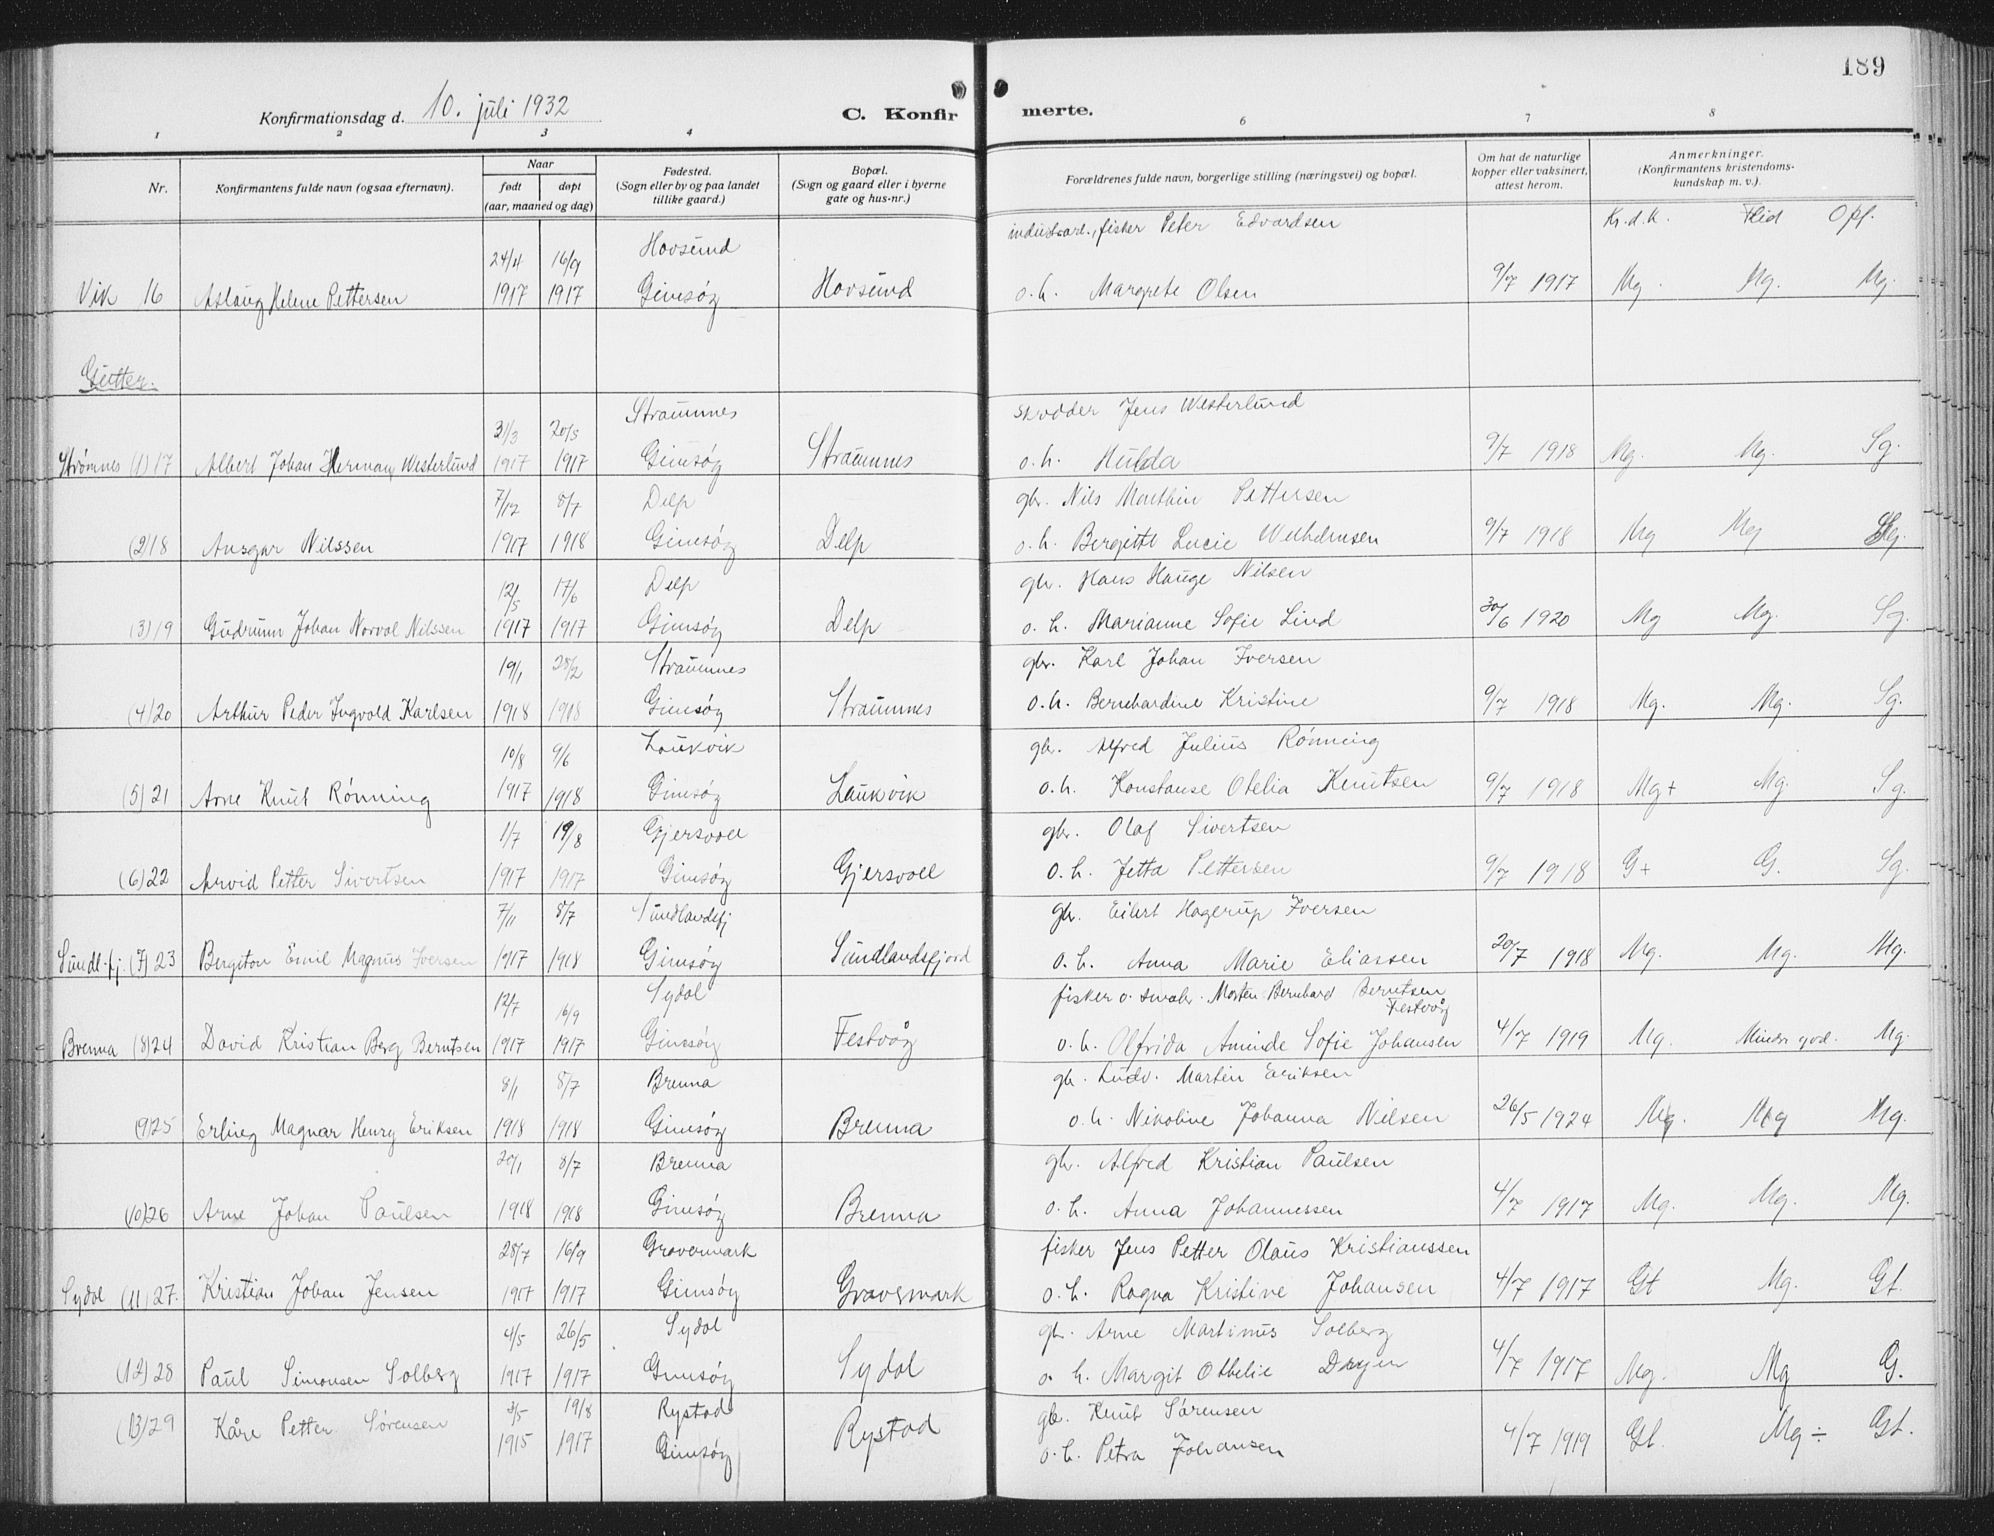 189
Konfirmationsdag d. 10. juli 1932
C. Konfirmerte.
1 2 3 4 6 7 8
Nr.
Konfirmantens fulde navn (ogsaa efternavn).
Naar
født døpt
(aar, maaned og dag)
Fødested.
(Sogn eller by og paa landet
tillike gaard.)
Bopæl.
(Sogn og gaard eller i byerne
gate og hus-nr.)
Forældrenes fulde navn, borgerlige stilling (næringsvei) og bopæl.
Om hat de naturlige
kopper eller vaksinert,
attest herom.
Anmerkninger.
(Konfirmantens kristendoms-
kundskap m. v.).
Kr.d.k. Flid Opf.
24/4 16/9 Hovsund fisker Peter Edvardsen
Vik 16 Aslaug Helene Pettersen 1917 1917 Gimsøy Hovsund o. h. Margrete Olsen 9/7 1917 Mg. Mg. Mg.
Gutter.
31/3 20/5 Straumnes skrædder Jens Westerlund
Strømnes (1) 17 Albert Johan Herman Westerlund 1917 1917 Gimsøy Straumnes o. h. Hulda 9/7 1918 Mg. Mg. Sg.
7/12 8/7 Delp gbr. Nils Marthin Pettersen
(2) 18 Ansgar Nilssen 1917 1918 Gimsøy Delp o. h. Bergitte Lucie Wilhelmsen 9/7 1918 Mg Mg Sg.
12/5 17/6 Delp gbr. Hans Hauge Nilsen
(3) 19 Gudrunn Johan Norval Nilssen 1917 1917 Gimsøy Delp o. h. Marianne Sofie Lind 30/6 1920 Mg Mg. Sg.
19/1 28/2 Straumnes gbr. Karl Johan Iversen
(4) 20 Arthur Peder Ingvold Karlsen 1918 1918 Gimsøy Straumnes o. h. Bernhardine Kristine 9/7 1918 Mg. Mg. Sg.
10/8 9/6 Laukvik gbr. Alfred Julius Rönning
(5) 21 Arne Knut Rönning 1917 1918 Gimsøy Laukvik o. h. Konstanse Otelia Knutsen 9/7 1918 Mg+ Mg. Sg.
1/7 19/8 Gjersvoll gbr. Olaf Sivertsen
(6) 22 Arvid Petter Sivertsen 1917 1917 Gimsøy Gjersvoll o. h. Jetta Pettersen 9/7 1918 G+ G. Sg.
7/11 8/7 Sundlandsfj gbr. Eilert Hagerup Iversen
Sundl.fj. (7) 23 Bergiton Emil Magnus Iversen 1917 1918 Gimsøy Sundlandsfjord o. h. Anna Marie Eliassen 20/7 1918 Mg. Mg. Mg.
12/7 16/9 Sydal fisker o. smabr. Morten Bernhard Berntsen
Festvåg
Brenna (8) 24 David Kristian Berg Berntsen 1917 1917 Gimsøy Festvåg o. h. Olfrida Aminde Sofie Johansen 4/7 1919 Mg. Mindre god. Mg.
8/1 8/7 Brenna gbr. Ludv. Martin Eriksen
(9) 25 Erling Magnar Henry Eriksen 1918 1918 Gimsøy Brenna o. h. Nikoline Johanna Nilsen 26/5 1924 Mg. Mg Mg.
20/1 8/7 Brenna gbr. Alfred Kristian Paulsen
(10) 26 Arne Johan Paulsen 1918 1918 Gimsøy Brenna o. h. Anna Johannessen 4/7 1917 Mg. Mg. Mg.
28/7 16/9 Gravermark fisker Jens Petter Olaus Kristianssen
Sydal (11) 27. Kristian Johan Jensen 1917 1917 Gimsøy Gravermark o. h. Ragna Kristine Johansen 4/7 1917 Gt Mg. Gt.
4/5 26/5 Sydal gbr. Arne Martinus Solberg
(12) 28 Paul Simonsen Solberg 1917 1917 Gimsøy Sydal o. h. Margit Othelie 4/7 1917 Mg. Mg G.
19/8 Rystad gbr. Knut Sørensen
(13) 29 Kåre Petter Sørensen 1915 1917 Gimsøy Rystad o. h. Petra Johansen 4/7 1919 Gt. Mg ÷ Gt.